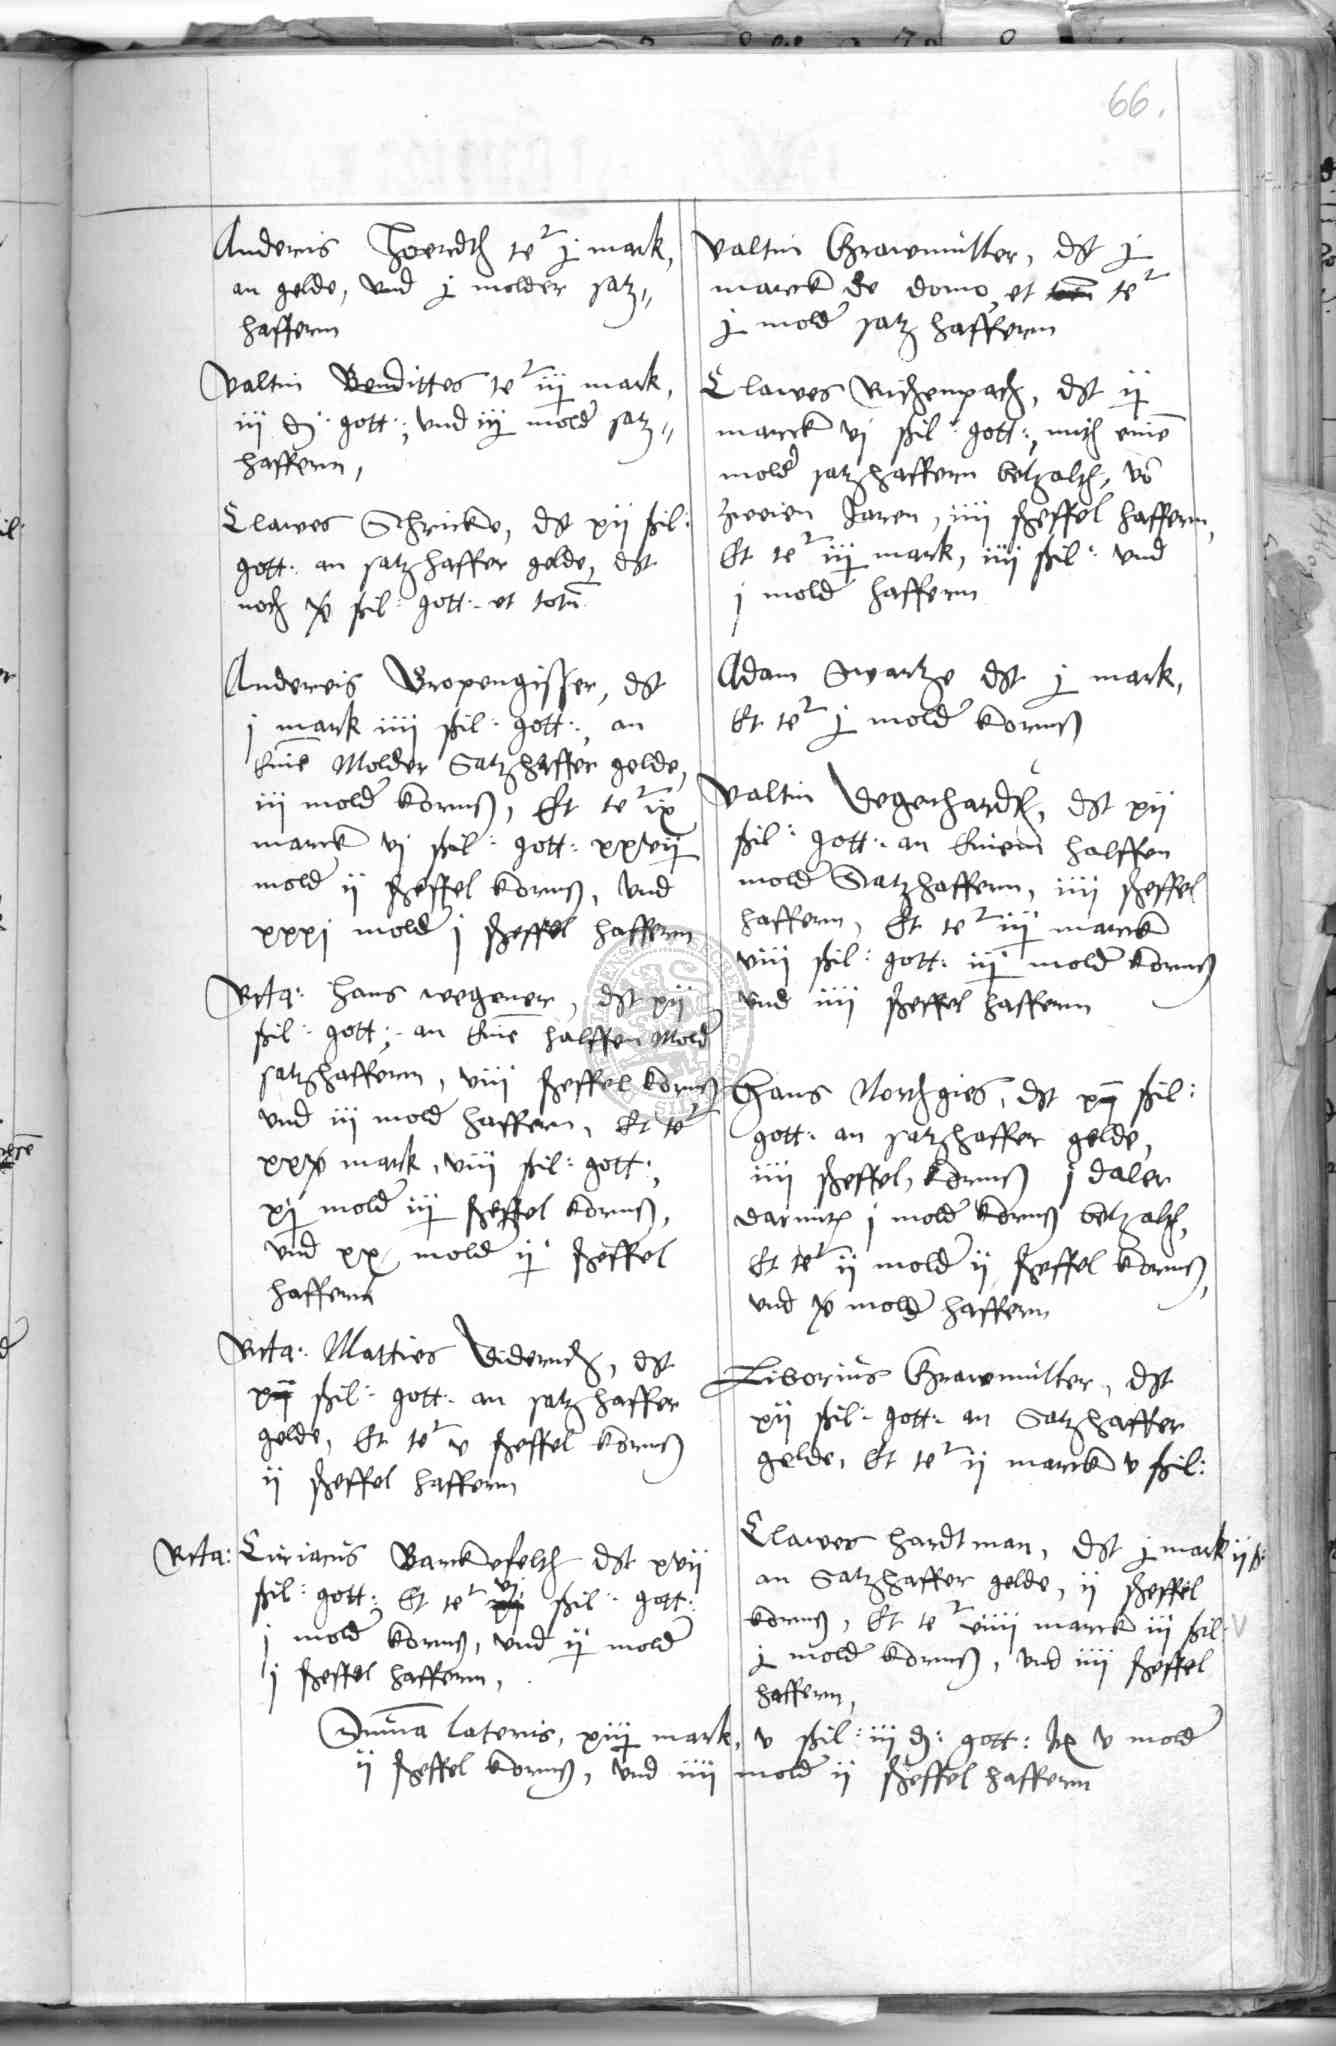 66.
Andereis Hoerdth te^r j mark,
an gelde, vnd j molder satz=
haffern
Valtin Bendittes te^r iij mark,
iij d: gott:, vnd iij mold satz=
haffern,
Clawes Schricke, dt xij ßil:
gott: an satzhaffer gelde, dt
noch ßil: gott: et totu
Andereis Gropengisser, dt
j mark iiij ßil: gott:, an
Eine Molder Satzhaffer gelde,
iij mold korns, Et te^r ix
marck vj ßil: gott: xxvij
mold ij scheffel korns, vnd
xxxj mold j scheffel haffern
Rcta: hans wegener, dt xij
ßil: gott: an Eine halffen Mold
satzhaffern, viij scheffel korns
vnd iij mold haffern, Et te^r
mark, viij ßil: gott:,
xj mold iij scheffel korns,
vnd xx mold ij scheffel
haffern
Rcta: Matties Diderich, dt
xij ßil: gott: an satzhaffer
gelde, Et te^r v scheffel korns
ij scheffel haffern
Rcta: Ciriacus Barckefelth dt xvij
ßil: gott: Et te^r vj ßil: gott:
j mold korns, vnd ij mold
j scheffel haffern,
Valtin Grawmüller, dt j
marck de domo, et te^r
j mold satz haffern
Clawes Richenpach, dt ij
marck vj ßil: gott:, mith eine
mold satzhaffern betzalth, vo
zweien Jaren, iiij scheffel haffern,
Et te^r iij mark, iiij ßil: vnd
j mold haffern
Adam Swartze dt j mark,
Et te^r j mold korns
Valtin Degerhardth, dt xij
ßil: gott: an Einem halffen
mold Satzhaffern, iiij scheffel
haffern, Et te^r iij marck
viij ßil: gott: iij mold korns
vnd iiij scheffel haffern
Hans Northgies, dt xij ßil:
gott: an satzhaffer gelde,
iiij scheffel, korns j daler
darmit j mold korns betzalth,
Et te^r ij mold ij scheffel korns,
vnd mold haffern
Liborius Grawmüller, dt
xij ßil: gott: an Satzhaffer
gelde, Et te^r ij marck v ßil:
Clawes hardtman, dt j mark ij ß:
an Satzhaffer gelde, ij scheffel
korns, Et te^r viiij marck iij ßil:
j mold korns, vnd iiij scheffel
haffern,
Suma lateris, xiij mark, v ßil: iij d: gott: v mold
ij scheffel korns, vnd iiij mold ij scheffel haffern